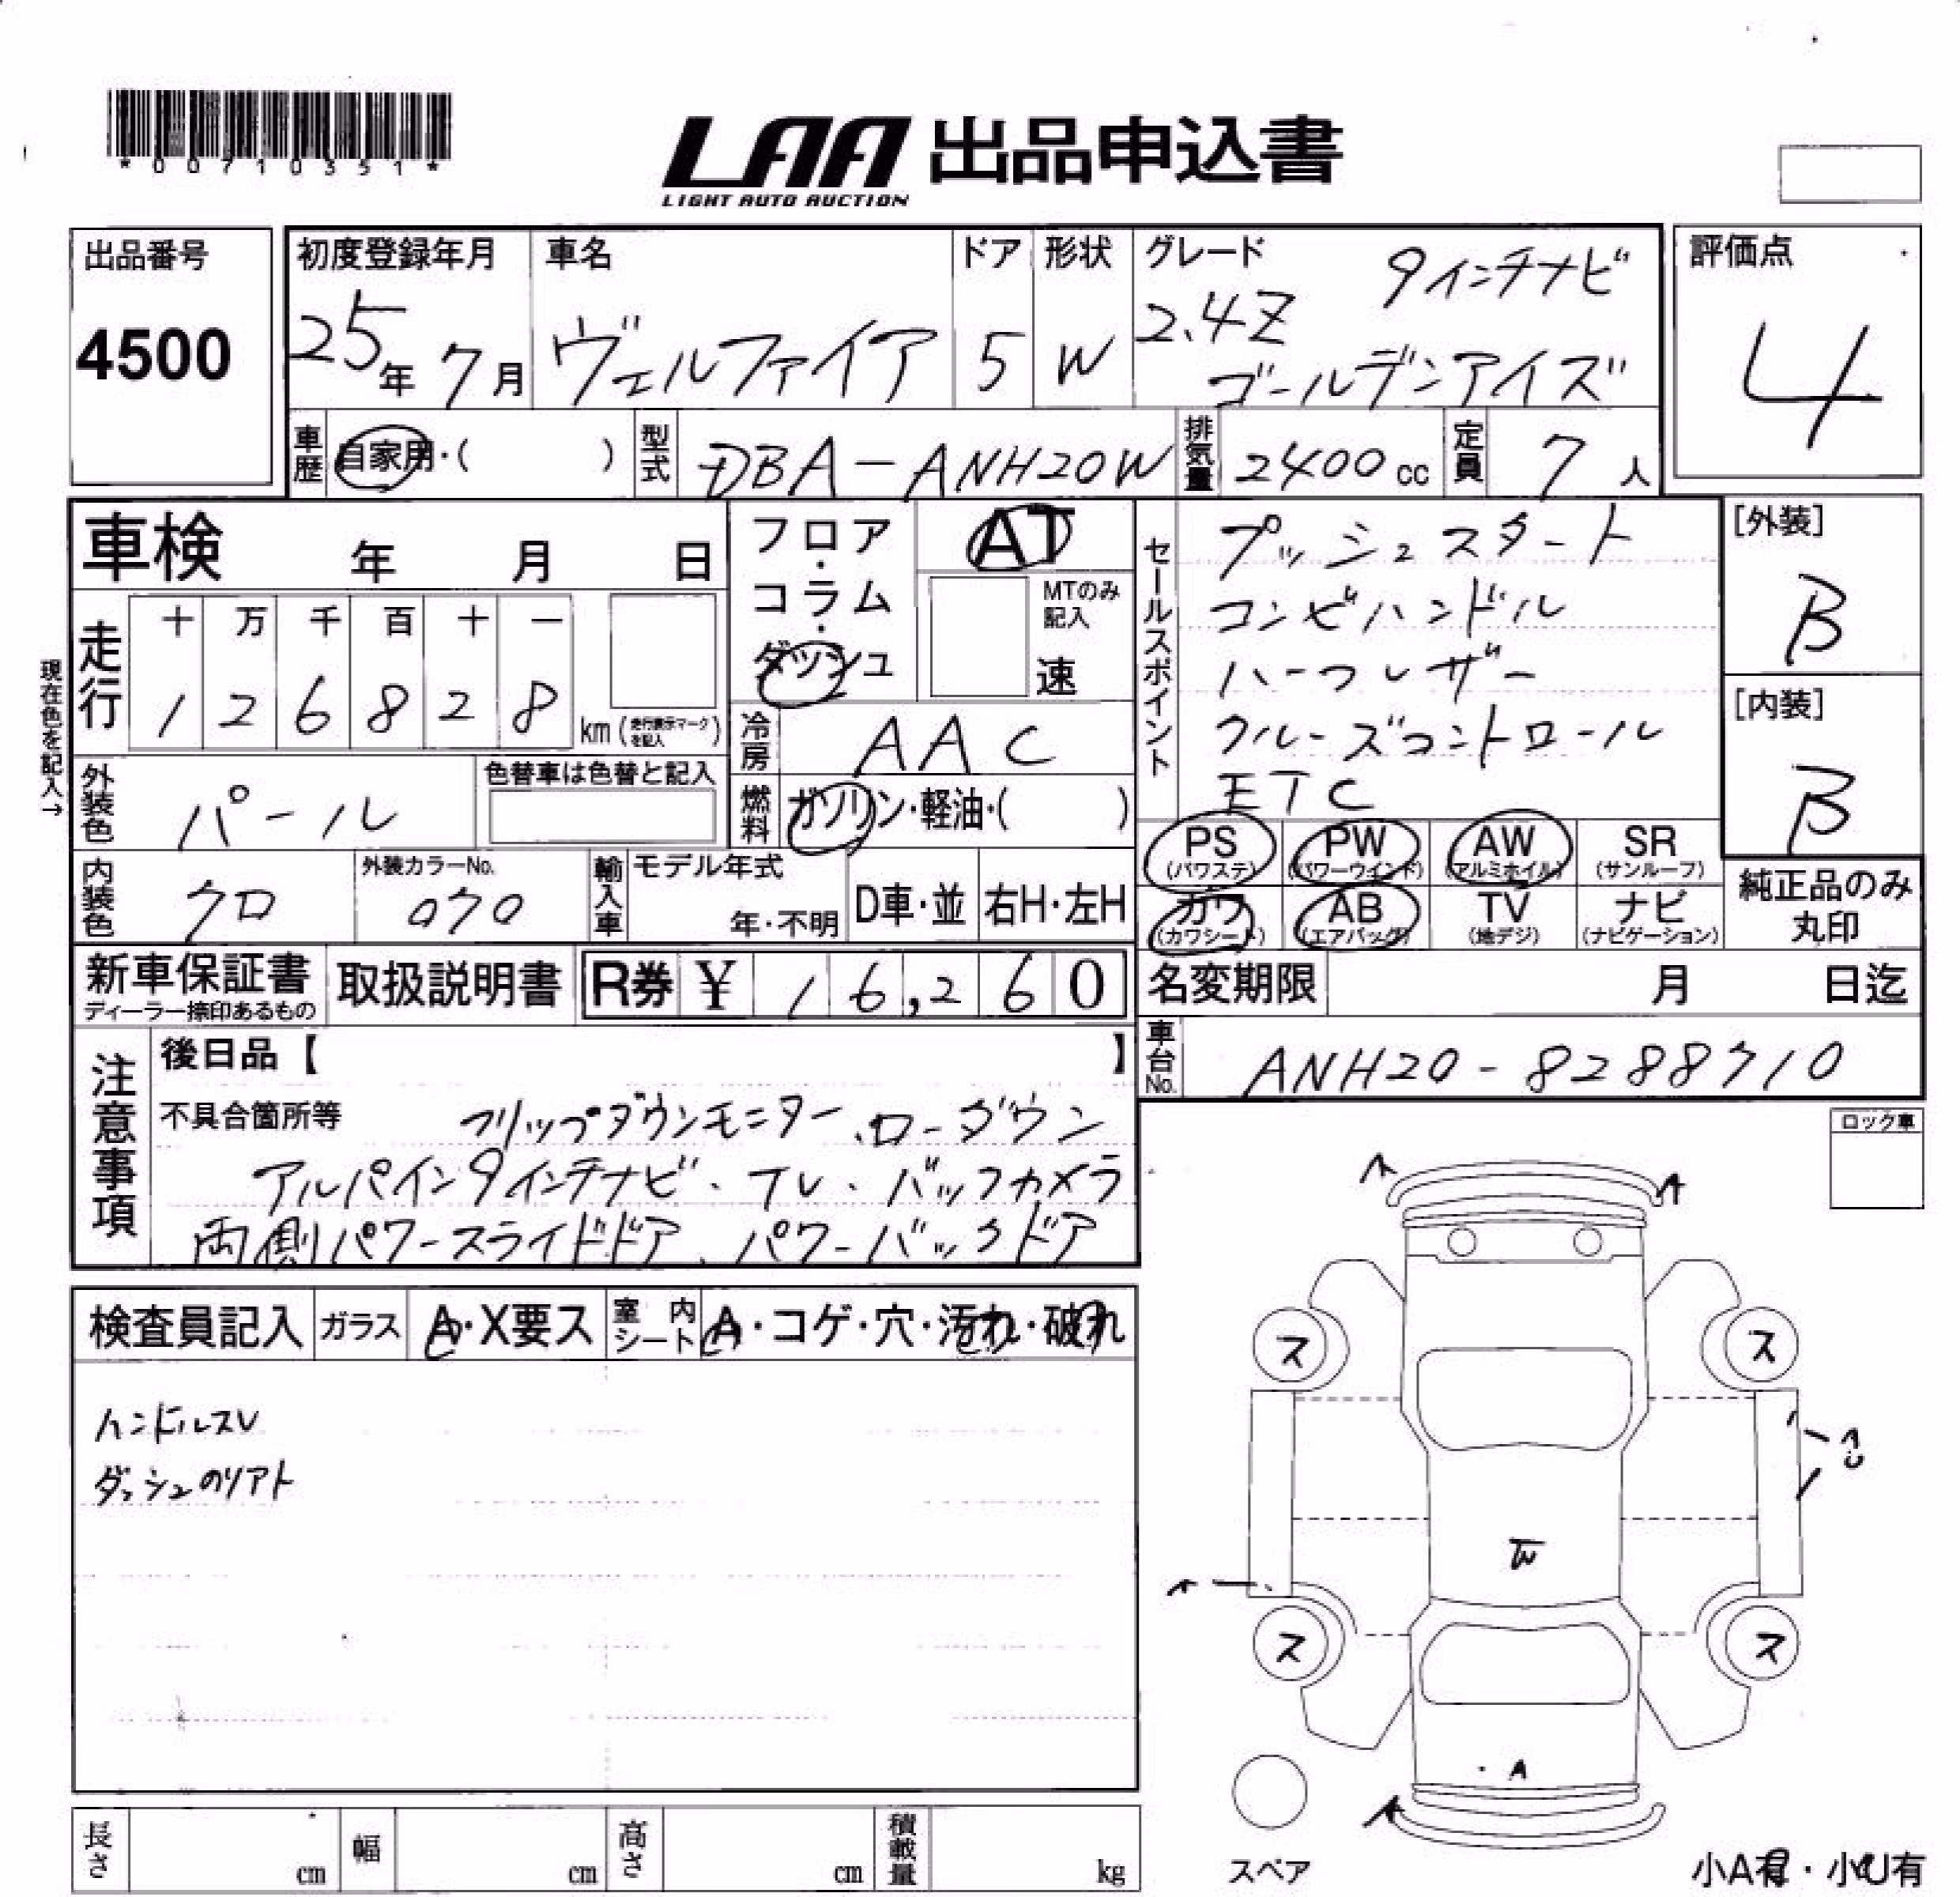 *00710351*
LAA 出品申込書
LIGHT AUTO AUCTION
出品番号
4500
初度登録年月
25年 7月
車名
ヴェルファイア
ドア
5
形状
W
グレード
9インチナビ
2.4Z
ゴールデンアイズ
評価点
4
車歴
自家用・( )
型式
DBA-ANH20W
排気量
2400cc
定員
7人
車検 年 月 日
フロア・コラム・ダッシュ
AT
MTのみ記入
速
セールスポイント
プッシュスタート
コンビハンドル
ハーフレザー
クルーズコントロール
ETC
[外装]
B
[内装]
B
現在色を記入→
走行
十 万 千 百 十 一
1 2 6 8 2 8 km(走行表示マークを記入)
冷房
AAC
外装色
パール
色替車は色替と記入
燃料
ガソリン・軽油・( )
内装色
クロ
外装カラーNo.
070
輸入車
モデル年式
年・不明
D車・並
右H・左H
PS (パワステ)
PW (パワーウインド)
AW (アルミホイル)
SR (サンルーフ)
カワ (カワシート)
AB (エアバッグ)
TV (地デジ)
ナビ (ナビゲーション)
純正品のみ丸印
新車保証書
ディーラー捺印あるもの
取扱説明書
R券 ¥ 16,260
名変期限 月 日迄
車台No.
ANH20-8288710
注意事項
後日品【 】
不具合箇所等
フリップダウンモニター、ローダウン
アルパイン9インチナビ・TV・バックカメラ
両側パワースライドドア、パワーバックドア
ロック車
検査員記入
ガラス
A・X要ス
室内シート
A・コゲ・穴・汚れ・破れ
ハンドルスレ
ダッシュのリアト
ス
ス
ス
ス
A
スペア
小A有・小U有
長さ cm
幅 cm
高さ cm
積載量 kg